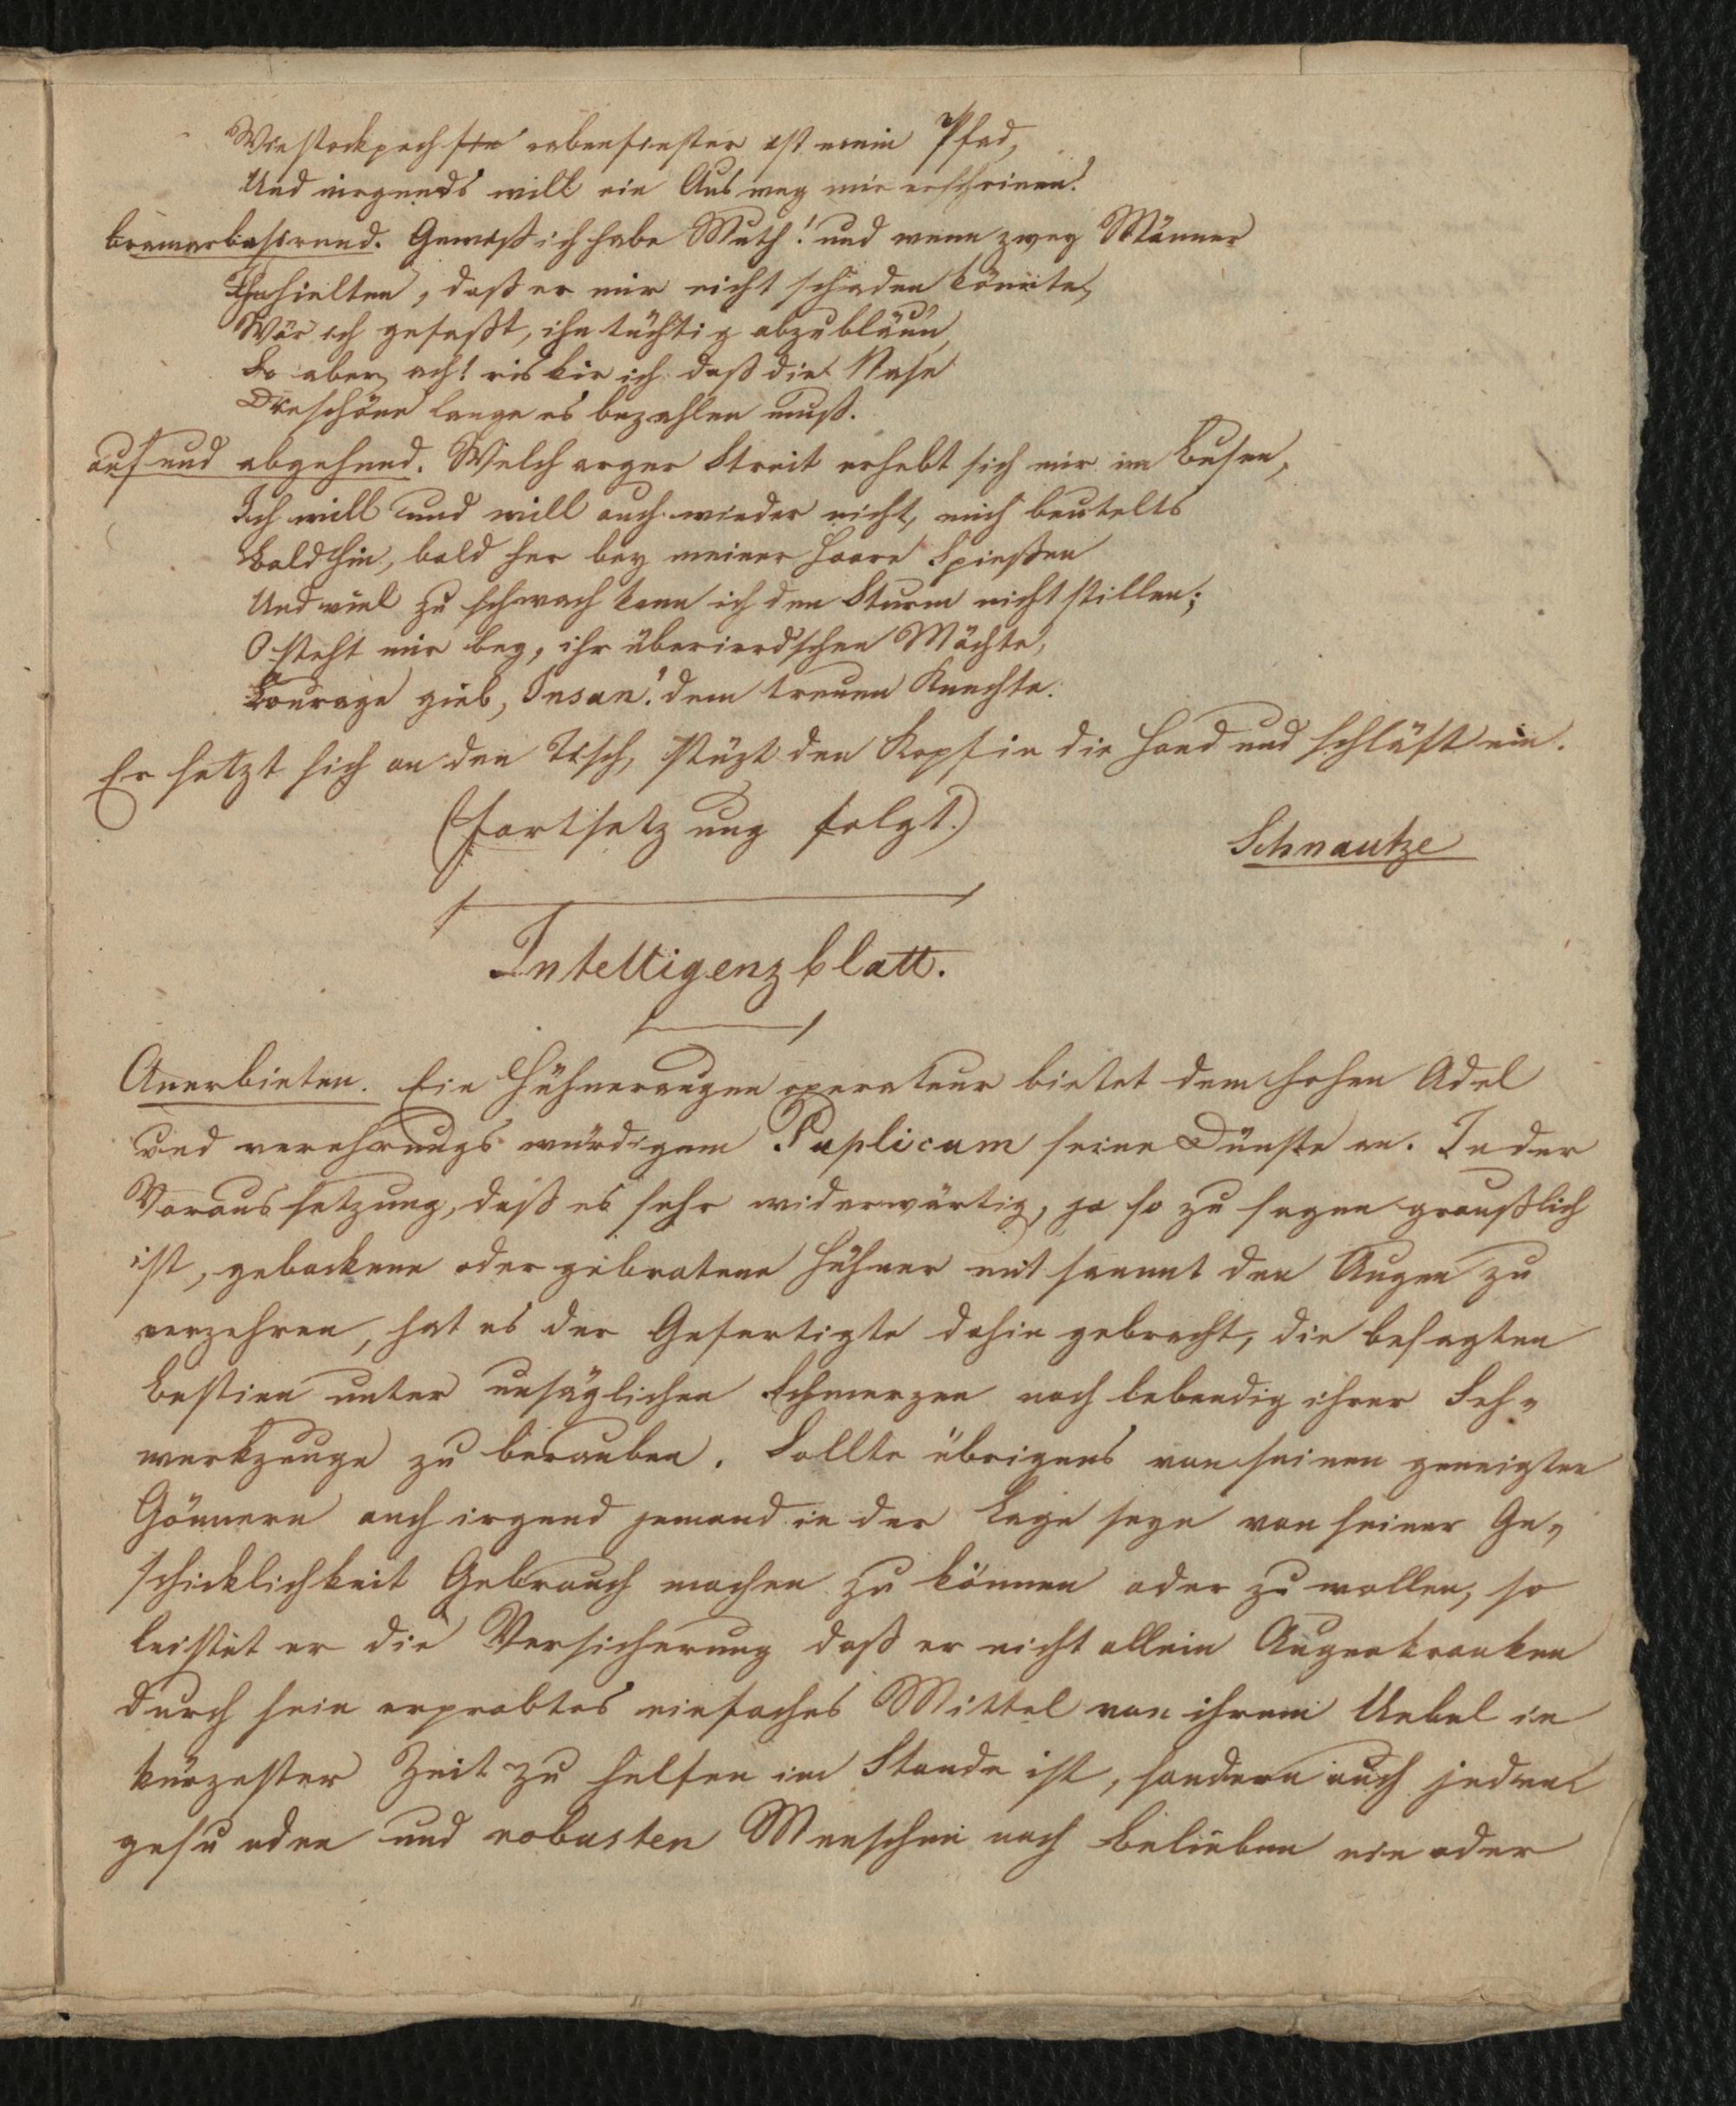 Wie stockpech rabenfinster ist mein Pfad,
Und nirgends will ein Ausweg mir erscheinen!
bramarbasirend. Gewiß ich habe Muth! und wenn zwey Männer
Ihn hielten, daß er mir nicht schaden könnte,
Wär ich gefaßt, ihn tüchtig abzubläun,
So aber, ach! riskir ich daß die Nase
Die schöne lange es bezahlen muß.
auf und abgehend. Welch arger Streit erhebt sich mir im Busen,
Ich will und will auch wieder nicht, mich beutelts
Bald hin, bald her bey meiner Haare Spießen
Und viel zu schwach kann ich den Sturm nicht stillen;
O steht mir bey, ihr überierdschen Mächte,
Kourage gieb, Insan! dem treuen Knechte.
Er setzt sich an den Tisch, stüzt den Kopf in die Hand und schläft ein.
(Fortsetzung folgt.)
Schnautze
Intelligenzblatt.
Anerbieten. Ein Hühneraugenoperateur bietet dem hohen Adel
und verehrungswürdigem Puplicum seine Dünste an. In der
Voraussetzung, daß es sehr widerwärtig, ja so zu sagen graußlich
ist, gebackene oder gebratene Hühner mit sammt den Augen zu
verzehren, hat es der Gefertigte dahin gebracht, die besagten
Bestien unter unsäglichen Schmerzen noch lebendig ihrer Seh-
werkzeuge zu berauben. Sollte übrigens von seinen geneigten
Gönnern auch irgend jemand in der Lage seyn von seiner Ge-
schicklichkeit Gebrauch machen zu können oder zu wollen, so
leistet er die Versicherung daß er nicht allein Augenkranken
durch sein erprobtes einfaches Mittel von ihrem Uebel in
kürzester Zeit zu helfen im Stande ist, sondern auch jeden
gesunden und robusten Menschen nach Belieben ein oder